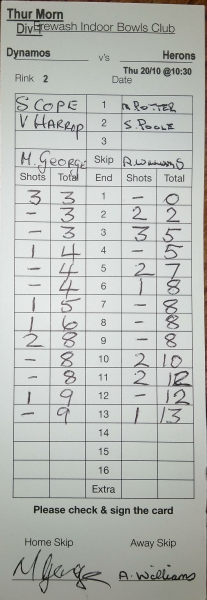 Thur Morn
Div 1
Erewash Indoor Bowls Club
Dynamos v's Herons
Thu 20/10 @10:30
Rink 2 Date
S COPE 1 POTTER
V HARROP 2 S. POOLE
3
M. GEORGE Skip A. WILLIAMS
Shots Total End Shots Total
3 3 1 - 0
- 3 2 2 2
- 3 3 3 5
1 4 4 - 5
- 4 5 2 7
- 4 6 1 8
1 5 7 - 8
1 6 8 - 8
2 8 9 - 8
- 8 10 2 10
- 8 11 2 12
1 9 12 - 12
- 9 13 1 13
14
15
16
Extra
Please check & sign the card
Home Skip Away Skip
M George A. Williams